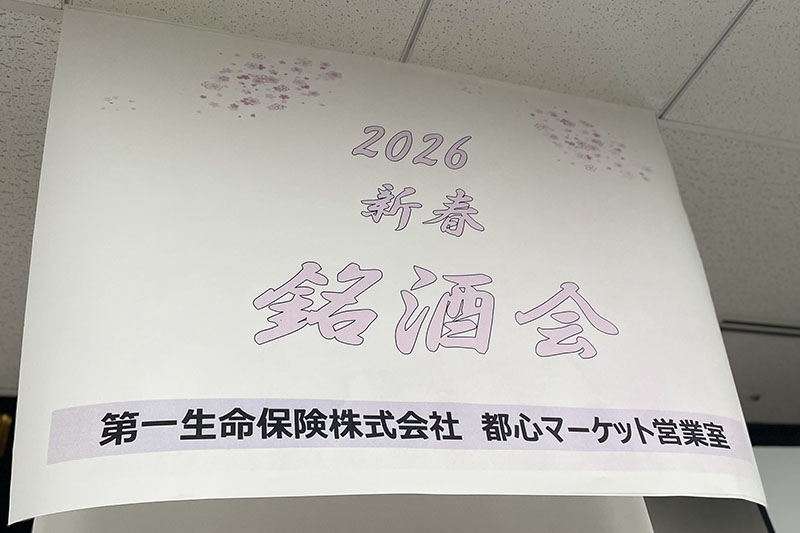 2026
新春
銘酒会
第一生命保険株式会社 都心マーケット営業室